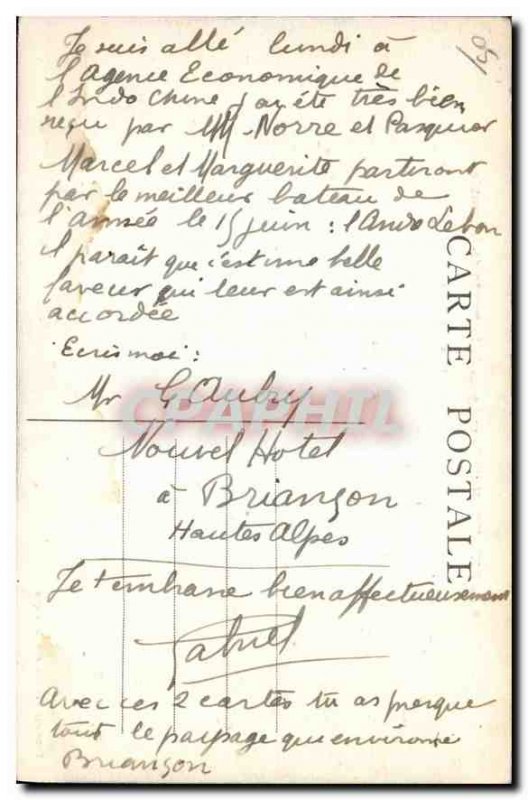 Je suis allé lundi à
l'Agence Economique de
l'Indo Chine j'ai été très bien
reçu par MM. Norre et Pasquier
Marcel et Marguerite partiront
par le meilleur bateau de
l'année le 15 juin : l'André Lebon
il parait que c'est une belle
faveur qui leur est ainsi
accordée
Ecris moi :
Mr G. Aubry
Nouvel Hotel
à Briançon
Hautes Alpes
Je t'embrasse bien affectueusement
Gabriel
Avec ces 2 cartes tu as presque
tout le paysage qui environne
Briançon
CARTE POSTALE
CPAPHIL